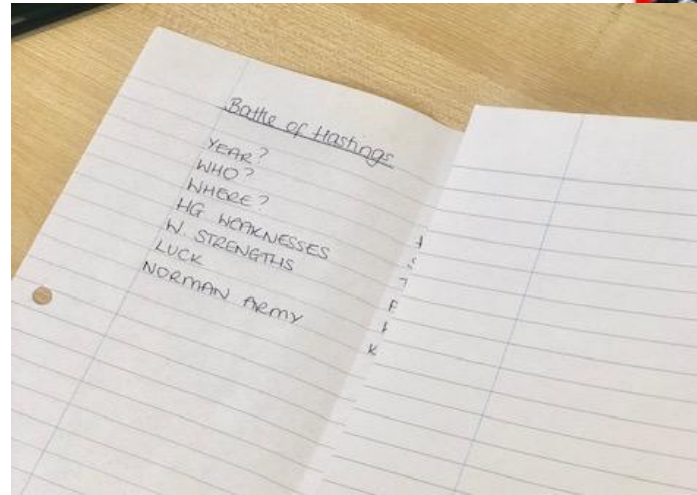 Battle of Hastings
YEAR?
WHO?
WHERE?
HG WEAKNESSES
W. STRENGTHS
LUCK
NORMAN ARMY